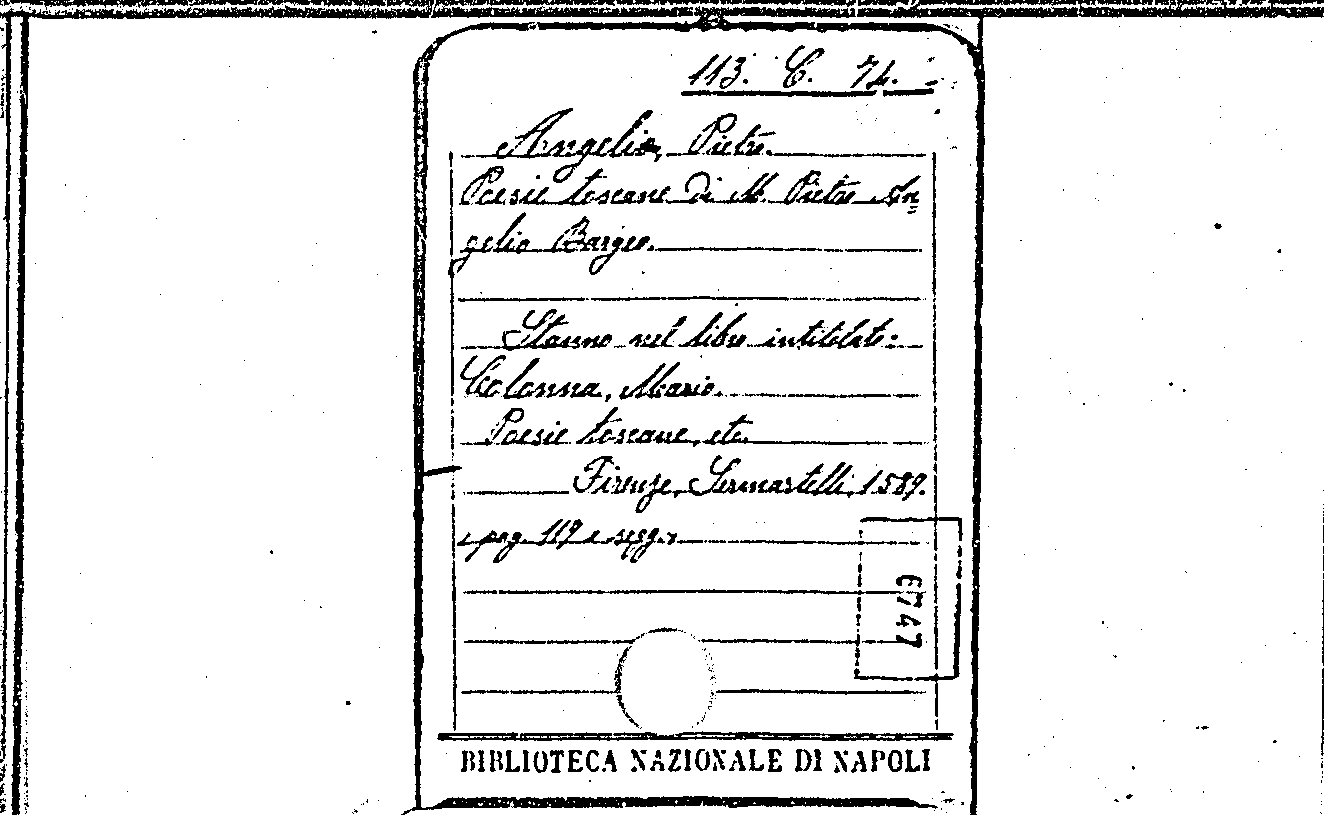 113. C. 74.
Angelio, Pietro.
Poesie toscane di M. Pietro An=
gelio Bargeo.
Stanno nel libro intitolato:
Colonna, Mario.
Poesie toscane, etc.
Firenze, Sermartelli, 1589.
a pag. 119 e segg.
6747
BIBLIOTECA NAZIONALE DI NAPOLI